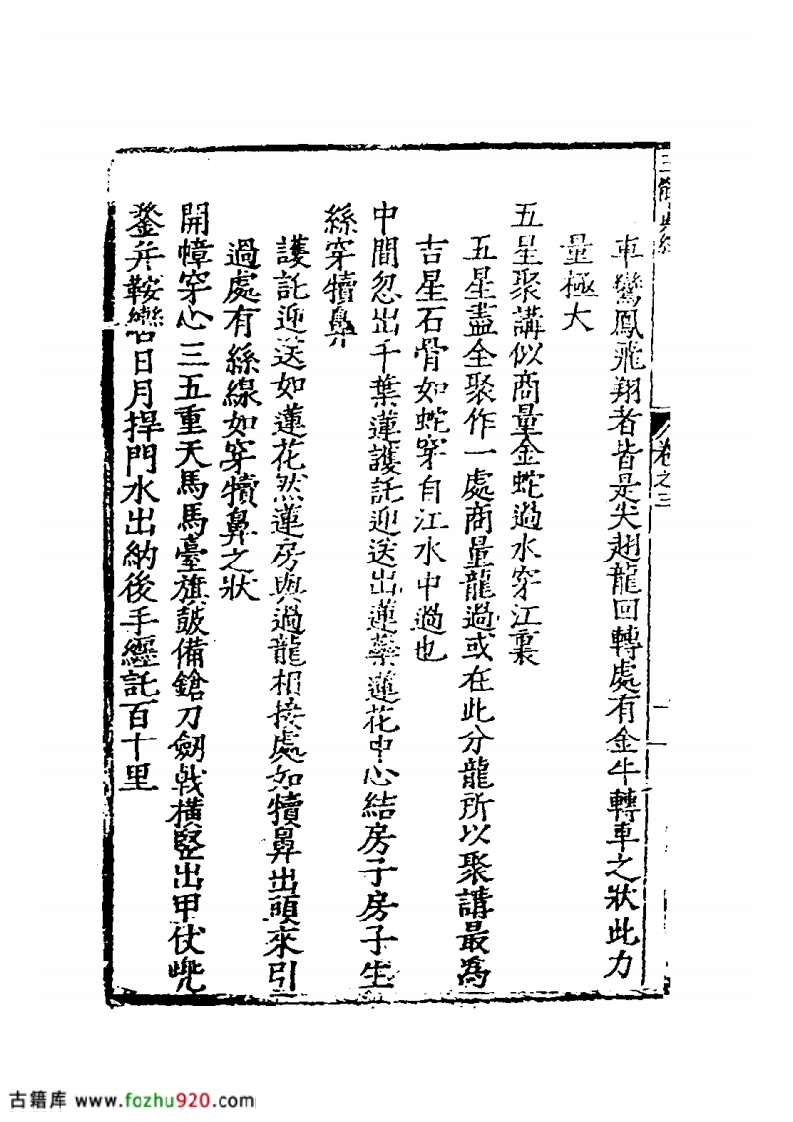 卷之三
車鸞鳳飛翔者皆是尖趐龍回轉處有金牛轉車之狀此力
量極大
五星聚講似商量金蛇過水穿江裏
五星盡全聚作一處商量龍過或在此分龍所以聚講最為
吉星石骨如蛇穿自江水中過也
中間忽出千葉蓮護託迎送出蓮藥蓮花中心結房子房子生
絲穿犢鼻
護託迎送如蓮花然蓮房與過龍相接處如犢鼻出頭來引
過處有絲線如穿犢鼻之狀
開幛穿心三五重天馬馬臺旗皷備鎗刀劔戟橫竪出甲伏兜
鍪并鞍日月捍門水出納後手纒託百十里
古籍库 www.fozhu920.com